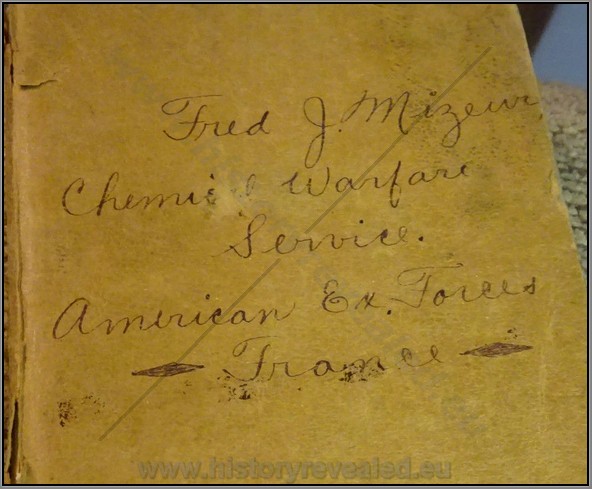 Fred J. Mizeur,
Chemical Warfare
Service.
American Ex. Forces
France
www.historyrevealed.eu